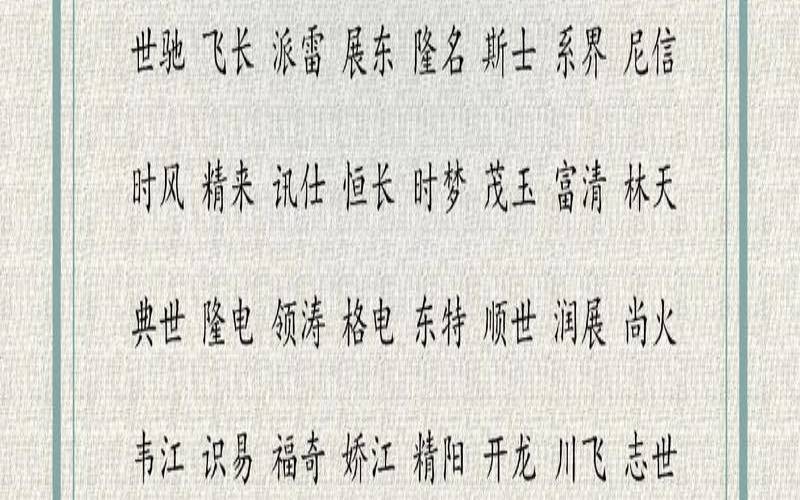 世驰 飞长 派雷 展东 隆名 斯士 系界 尼信
时风 精来 讯仕 恒长 时梦 茂玉 富清 林天
典世 隆电 领涛 格电 东特 顺世 润展 尚火
韦江 识易 福奇 娇江 精阳 开龙 川飞 志世